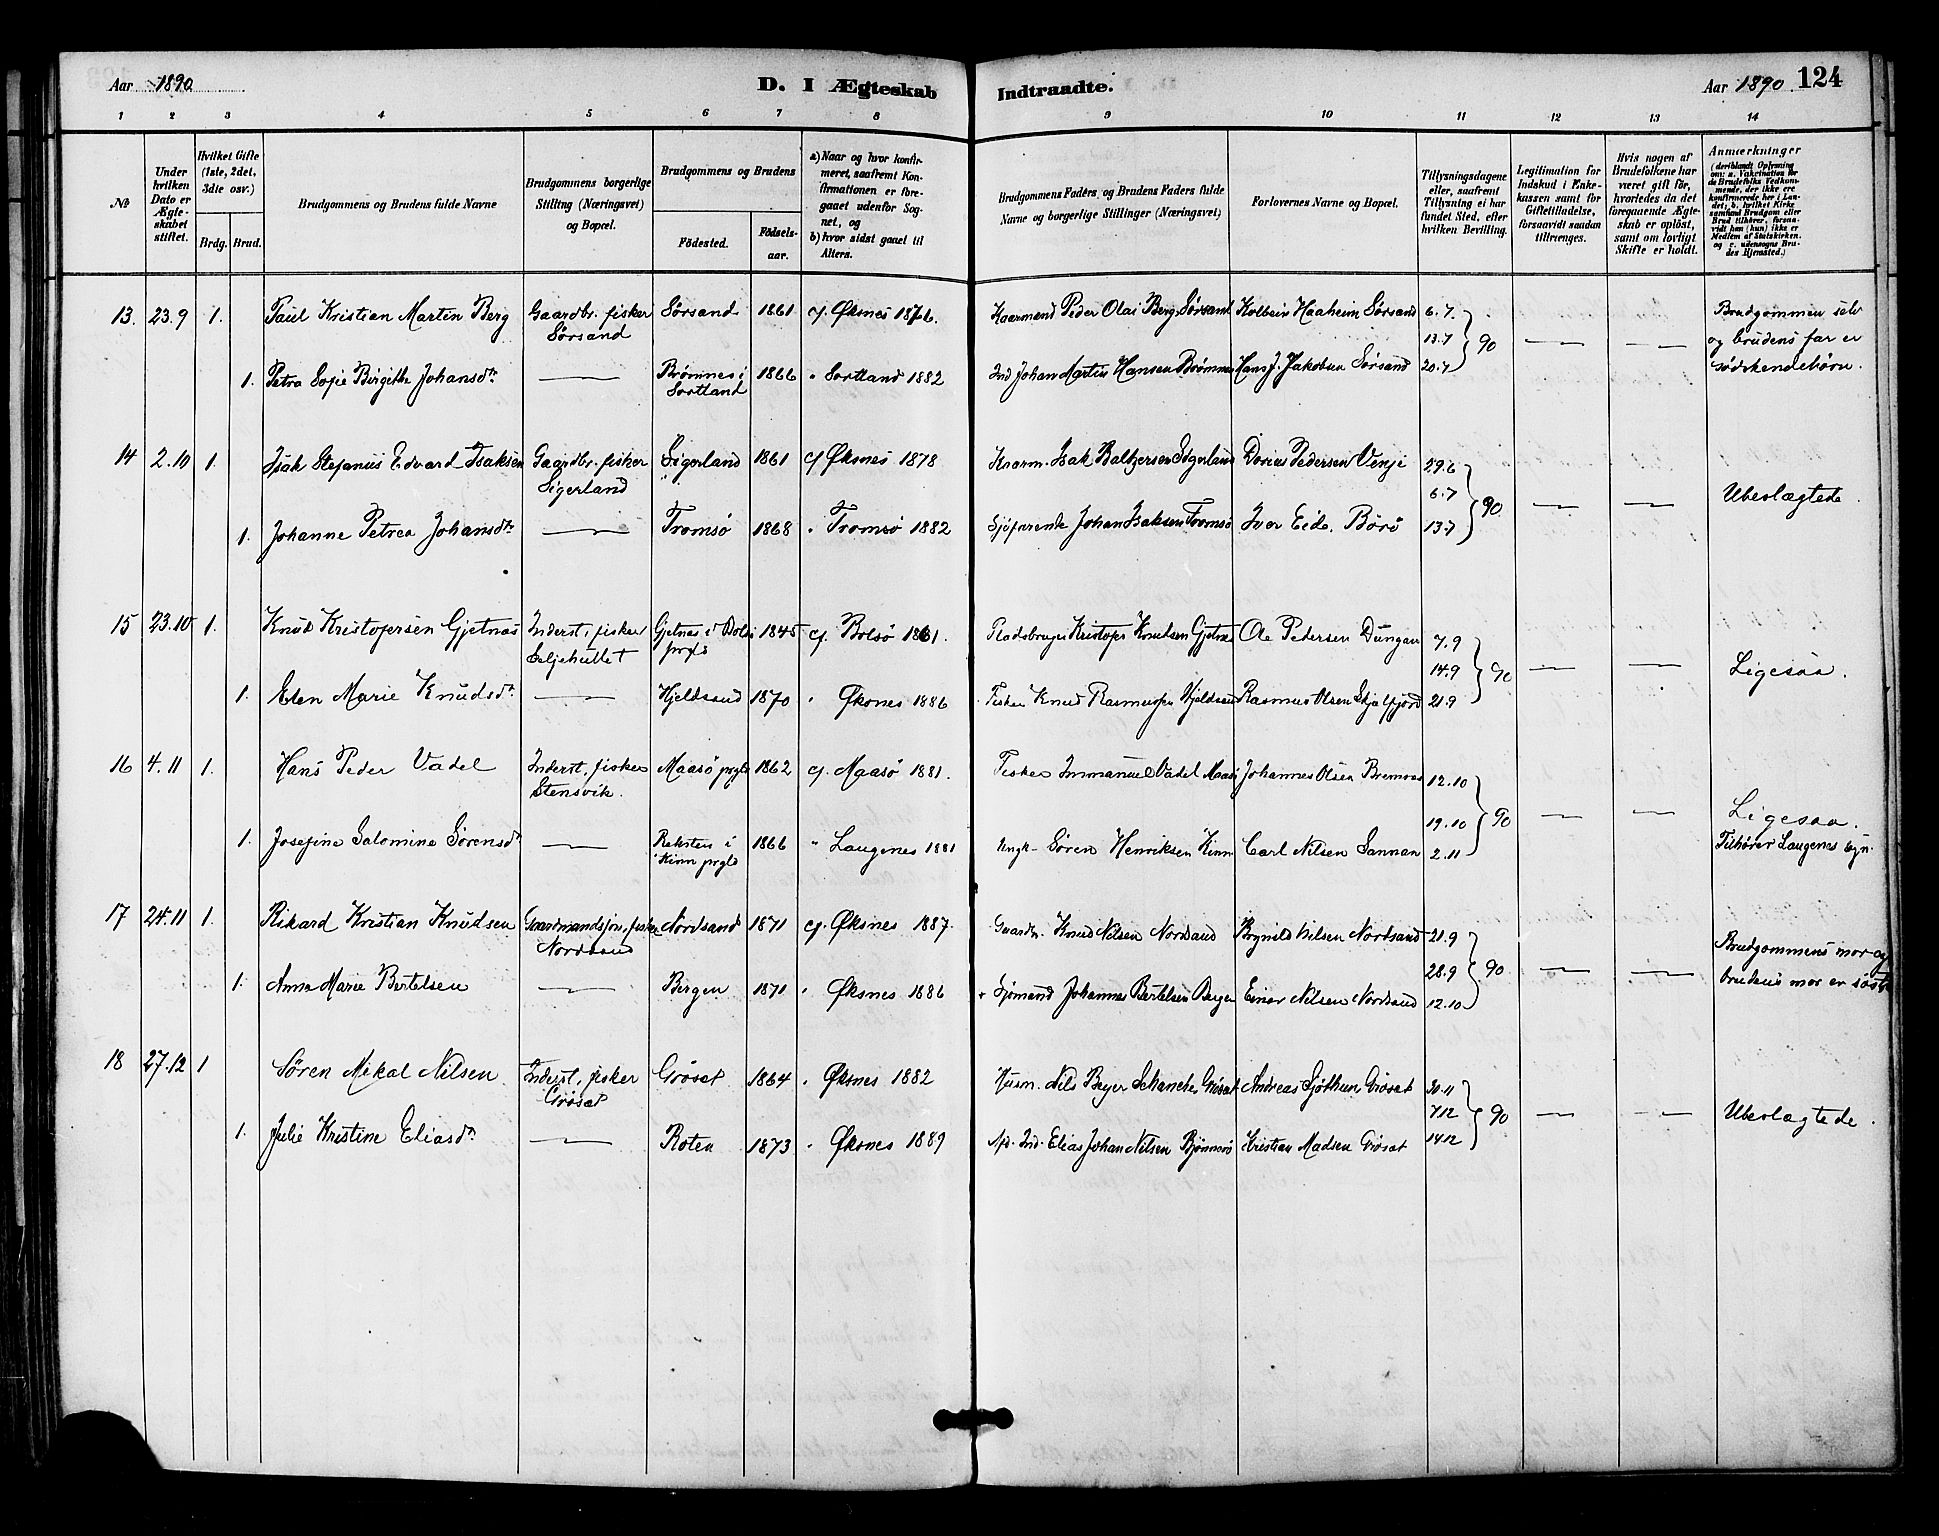 Aar 1890
D. I Ægteskab
Indtraadte.
Aar 1890. 124
1 2 3 4 5 6 7 8 9 10 11 12 13 14
No
Under hvilken Dato er Ægteskabet stiftet.
Hvilket Gifte (1ste, 2det, 3die osv.)
Brdg. Brud.
Brudgommens og Brudens fulde Navne
Brudgommens borgerlige Stilling (Næringsvei) og Bopæl.
Brudgommens og Brudens
Födested.
Födselsaar.
a) Naar og hvor konfirmeret, saafremt Konfirmationen er foregaaet udenfor Sognet, og
b) hvor sidst gaaet til Alters.
Brudgommens Faders, og Brudens Faders fulde Navne og borgerlige Stillinger (Næringsvei)
Forlovernes Navne og Bopæl.
Tillysningsdagene eller, saafremt Tillysning ei har fundet Sted, efter hvilken Bevilling.
Legitimation for Indskud i Enkekassen samt for Giftetilladelse, forsaavidt saadan tiltrænges.
Hvis nogen af Brudefolkene har været gift för, hvorledes da det foregaaende Ægteskab er oplöst, samt om lovligt Skifte er holdt.
Anmærkninger (deriblandt Oplysning om: a. Vakcination for de Brudefolks Vedkommende, der ikke ere konfirmerede her i Landet; b. hvilket Kirkesamfund Brudgom eller Brud tilhörer, forsaavidt han (hun) ikke er Medlem af Statskirken. og c. udensogns Brudes Hjemsted.)
13. 23.9 1. Paul Kristian Martin Berg Gaardbr. fisker Sørsand 1861 cf. Øksnes 1876. Kaarmand Peder Olai Berg Sørsand Kolbein Haaheim Sørsand 6.7 Brudgommen selv
Sørsand 13.7 90 — — og brudens far er
1. Petra Sofie Birgithe Johansdtr — Brømnes i 1866 " Sortland 1882 Ind Johan Martin Hansen Brømnes Hans J. Jakobsen Sørsand 20.7 södskendebörn.
Sortland
14 2.10 1. Isak Stefanus Edvard Isaksen Gaardbr. fisker Sigerland 1861 cf Øksnes 1878 Kaarm. Isak Baltzersen Sigerland Dorius Pedersen Venje 29.6
Sigerland 6.7 90 — — Ubeslægtede.
1. Johanne Petrea Johansdtr — Tromsö 1868 " Tromsö 1882 Sjöfarende Johan Isaksen Tromsö Iver Eide. Börö 13.7
15 23.10 1. Knud Kristofersen Gjetnæs Inderst, fisker Gjetnæs i Bolsö 1845 cf. Bolsö 1861. Pladsbruger Kristofer Knudsen Gjetnæs Ole Pedersen Dungan 7.9
Seljehullet prgld 14.9 90 — — Ligesaa.
1. Elen Marie Knudsdtr — Hjeldsand 1870 " Øksnes 1886 Fisker Knud Rasmussen Hjeldsand Rasmus Olsen Skjelfjord 21.9
16 4.11 1. Hans Peder Vadel Inderst, fisker Maasö prgld 1862 cf. Maasö 1881. Fisker Immanuel Vadel Maasö Johannes Olsen Bremnes 12.10
Stensvik. 19.10 90 — — Ligesaa.
1. Josefine Salomine Sörensdtr — Reksten i 1866 " Langenes 1881 Ungk. Sören Henriksen Kinn Carl Nilsen Sannan 2.11 Tilhörer Langenes sogn.
Kinn prgld
17 24.11 1. Rikard Kristian Knudsen Gaardmandssön, fisker Nordsand 1871 cf. Øksnes 1887. Gaardm. Knud Nilsen Nordsand Brynild Nilsen Nordsand 21.9
Nordsand 28.9 90 — — Brudgommens mor og
1. Anna Marie Bertelsen — Bergen 1871 " Øksnes 1886 Sjömand Johannes Bertelsen Bergen Einar Nilsen Nordsand 12.10 brudens mor er söstr
18 27.12 1 Sören Mikal Nilsen Inderst, fisker Gröset 1864 " Øksnes 1882 Husm. Nils Beyer Schanche Gröset Andreas Sjöthun Gröset 30.11
Gröset 7.12 90 — — Ubeslægtede.
1. Julie Kristine Eliasdtr — Roten 1873 " Øksnes 1889 Ind. Elias Johan Nilsen Björnnes Kristian Madsen Gröset 14.12